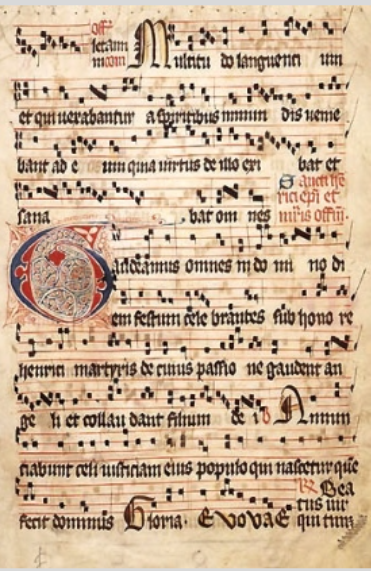 Multitu do languenti um
et qui vexabantur a spiritibus inmun dis venie
bant ad e um quia virtus de illo exi bat et
sana bat om nes
Gaudeamus omnes in do mi no di
em festum cele brantes sub hono re
henrici martyris de cuius passio ne gaudent an
ge li et collau dant filium de i Annun
ciabunt celi iusticiam eius populo qui nascetur que
fecit dominus Gloria. Evovae qui tim